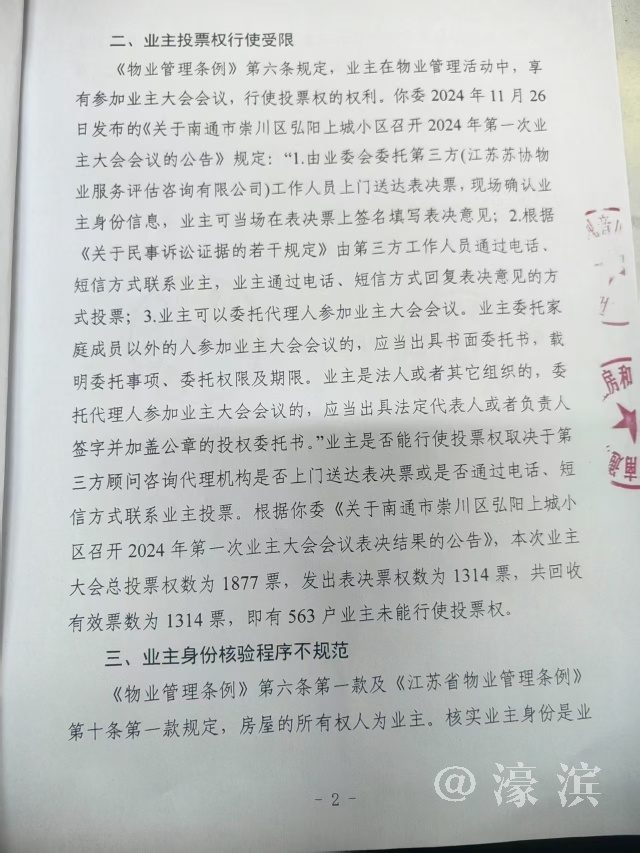 二、业主投票权行使受限
《物业管理条例》第六条规定，业主在物业管理活动中，享
有参加业主大会会议，行使投票权的权利。你委 2024 年 11 月 26
日发布的《关于南通市崇川区弘阳上城小区召开 2024 年第一次业
主大会会议的公告》规定：“1.由业委会委托第三方(江苏苏协物
业服务评估咨询有限公司)工作人员上门送达表决票，现场确认业
主身份信息，业主可当场在表决票上签名填写表决意见；2.根据
《关于民事诉讼证据的若干规定》由第三方工作人员通过电话、
短信方式联系业主，业主通过电话、短信方式回复表决意见的方
式投票；3.业主可以委托代理人参加业主大会会议。业主委托家
庭成员以外的人参加业主大会会议的，应当出具书面委托书，载
明委托事项、委托权限及期限。业主是法人或者其它组织的，委
托代理人参加业主大会会议的，应当出具法定代表人或者负责人
签字并加盖公章的授权委托书。”业主是否能行使投票权取决于第
三方顾问咨询代理机构是否上门送达表决票或是否通过电话、短
信方式联系业主投票。根据你委《关于南通市崇川区弘阳上城小
区召开 2024 年第一次业主大会会议表决结果的公告》，本次业主
大会总投票权数为 1877 票，发出表决票权数为 1314 票，共回收
有效票数为 1314 票，即有 563 户业主未能行使投票权。
三、业主身份核验程序不规范
《物业管理条例》第六条第一款及《江苏省物业管理条例》
第十条第一款规定，房屋的所有权人为业主。核实业主身份是业
- 2 -
@濠滨
房和
南通